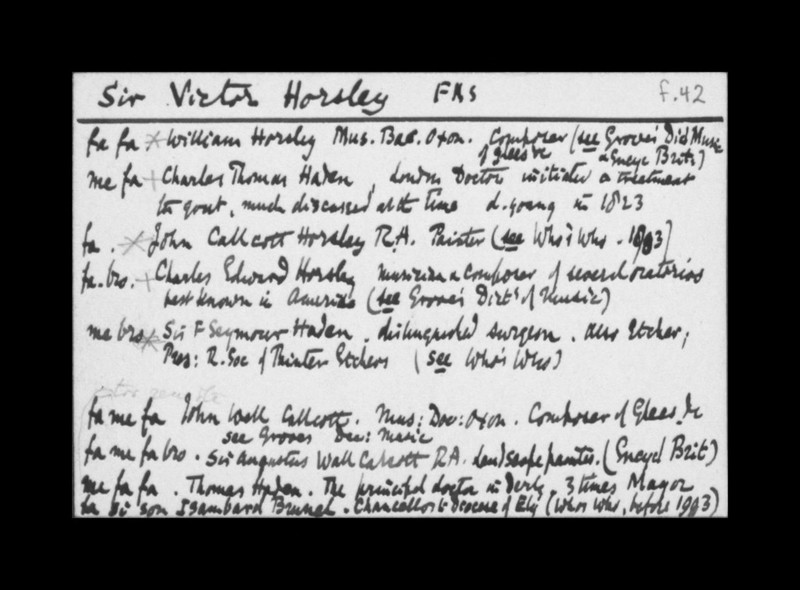 Sir Victor Horsley FRS f.42
fa fa William Horsley Mus. Bac. Oxon. Composer (see Grove's Dict Music
of glees &c & Encyc Brit:)
me fa Charles Thomas Haden, London Doctor initiated a treatment
for gout, much discussed at the time d. young in 1823
fa. John Callcott Horsley R.A. Painter (see Who's Who - 1903)
fa. bro. Charles Edward Horsley musician & composer of several oratorios
best known in America (see Grove's Dict: of Music)
me bro Sir F Seymour Haden. distinguished surgeon. also Etcher;
Pres: R. Soc of Painter Etchers (see Who's Who)
fa me fa John Wall Callcott. Mus: Doc: Oxon. Composer of Glees &c
see Groves Dic: Music
fa me fa bro. Sir Augustus Wall Calcott RA. landscape painter. (Encycl Brit)
me fa fa. Thomas Haden. The principal doctor in Derby. 3 times Mayor
fa si son Isambard Brunel. Chancellor to diocese of Ely (Who's Who, before 1903)